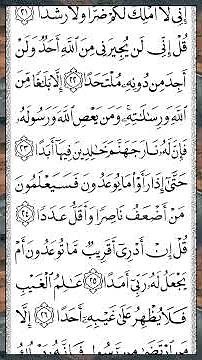 إِنِّى لَآ أَمْلِكُ لَكُمْ ضَرًّا وَلَا رَشَدًا ٢١
قُلْ إِنِّى لَن يُجِيرَنِى مِنَ ٱللَّهِ أَحَدٌ وَلَنْ
أَجِدَ مِن دُونِهِۦ مُلْتَحَدًا ٢٢ إِلَّا بَلَٰغًا مِّنَ
ٱللَّهِ وَرِسَٰلَٰتِهِۦ وَمَن يَعْصِ ٱللَّهَ وَرَسُولَهُۥ
فَإِنَّ لَهُۥ نَارَ جَهَنَّمَ خَٰلِدِينَ فِيهَآ أَبَدًا
٢٣ حَتَّىٰٓ إِذَا رَأَوْا۟ مَا يُوعَدُونَ فَسَيَعْلَمُونَ
مَنْ أَضْعَفُ نَاصِرًا وَأَقَلُّ عَدَدًا ٢٤
قُلْ إِنْ أَدْرِىٓ أَقَرِيبٌ مَّا تُوعَدُونَ أَمْ
يَجْعَلُ لَهُۥ رَبِّىٓ أَمَدًا ٢٥ عَٰلِمُ ٱلْغَيْبِ
فَلَا يُظْهِرُ عَلَىٰ غَيْبِهِۦٓ أَحَدًا ٢٦ إِلَّا